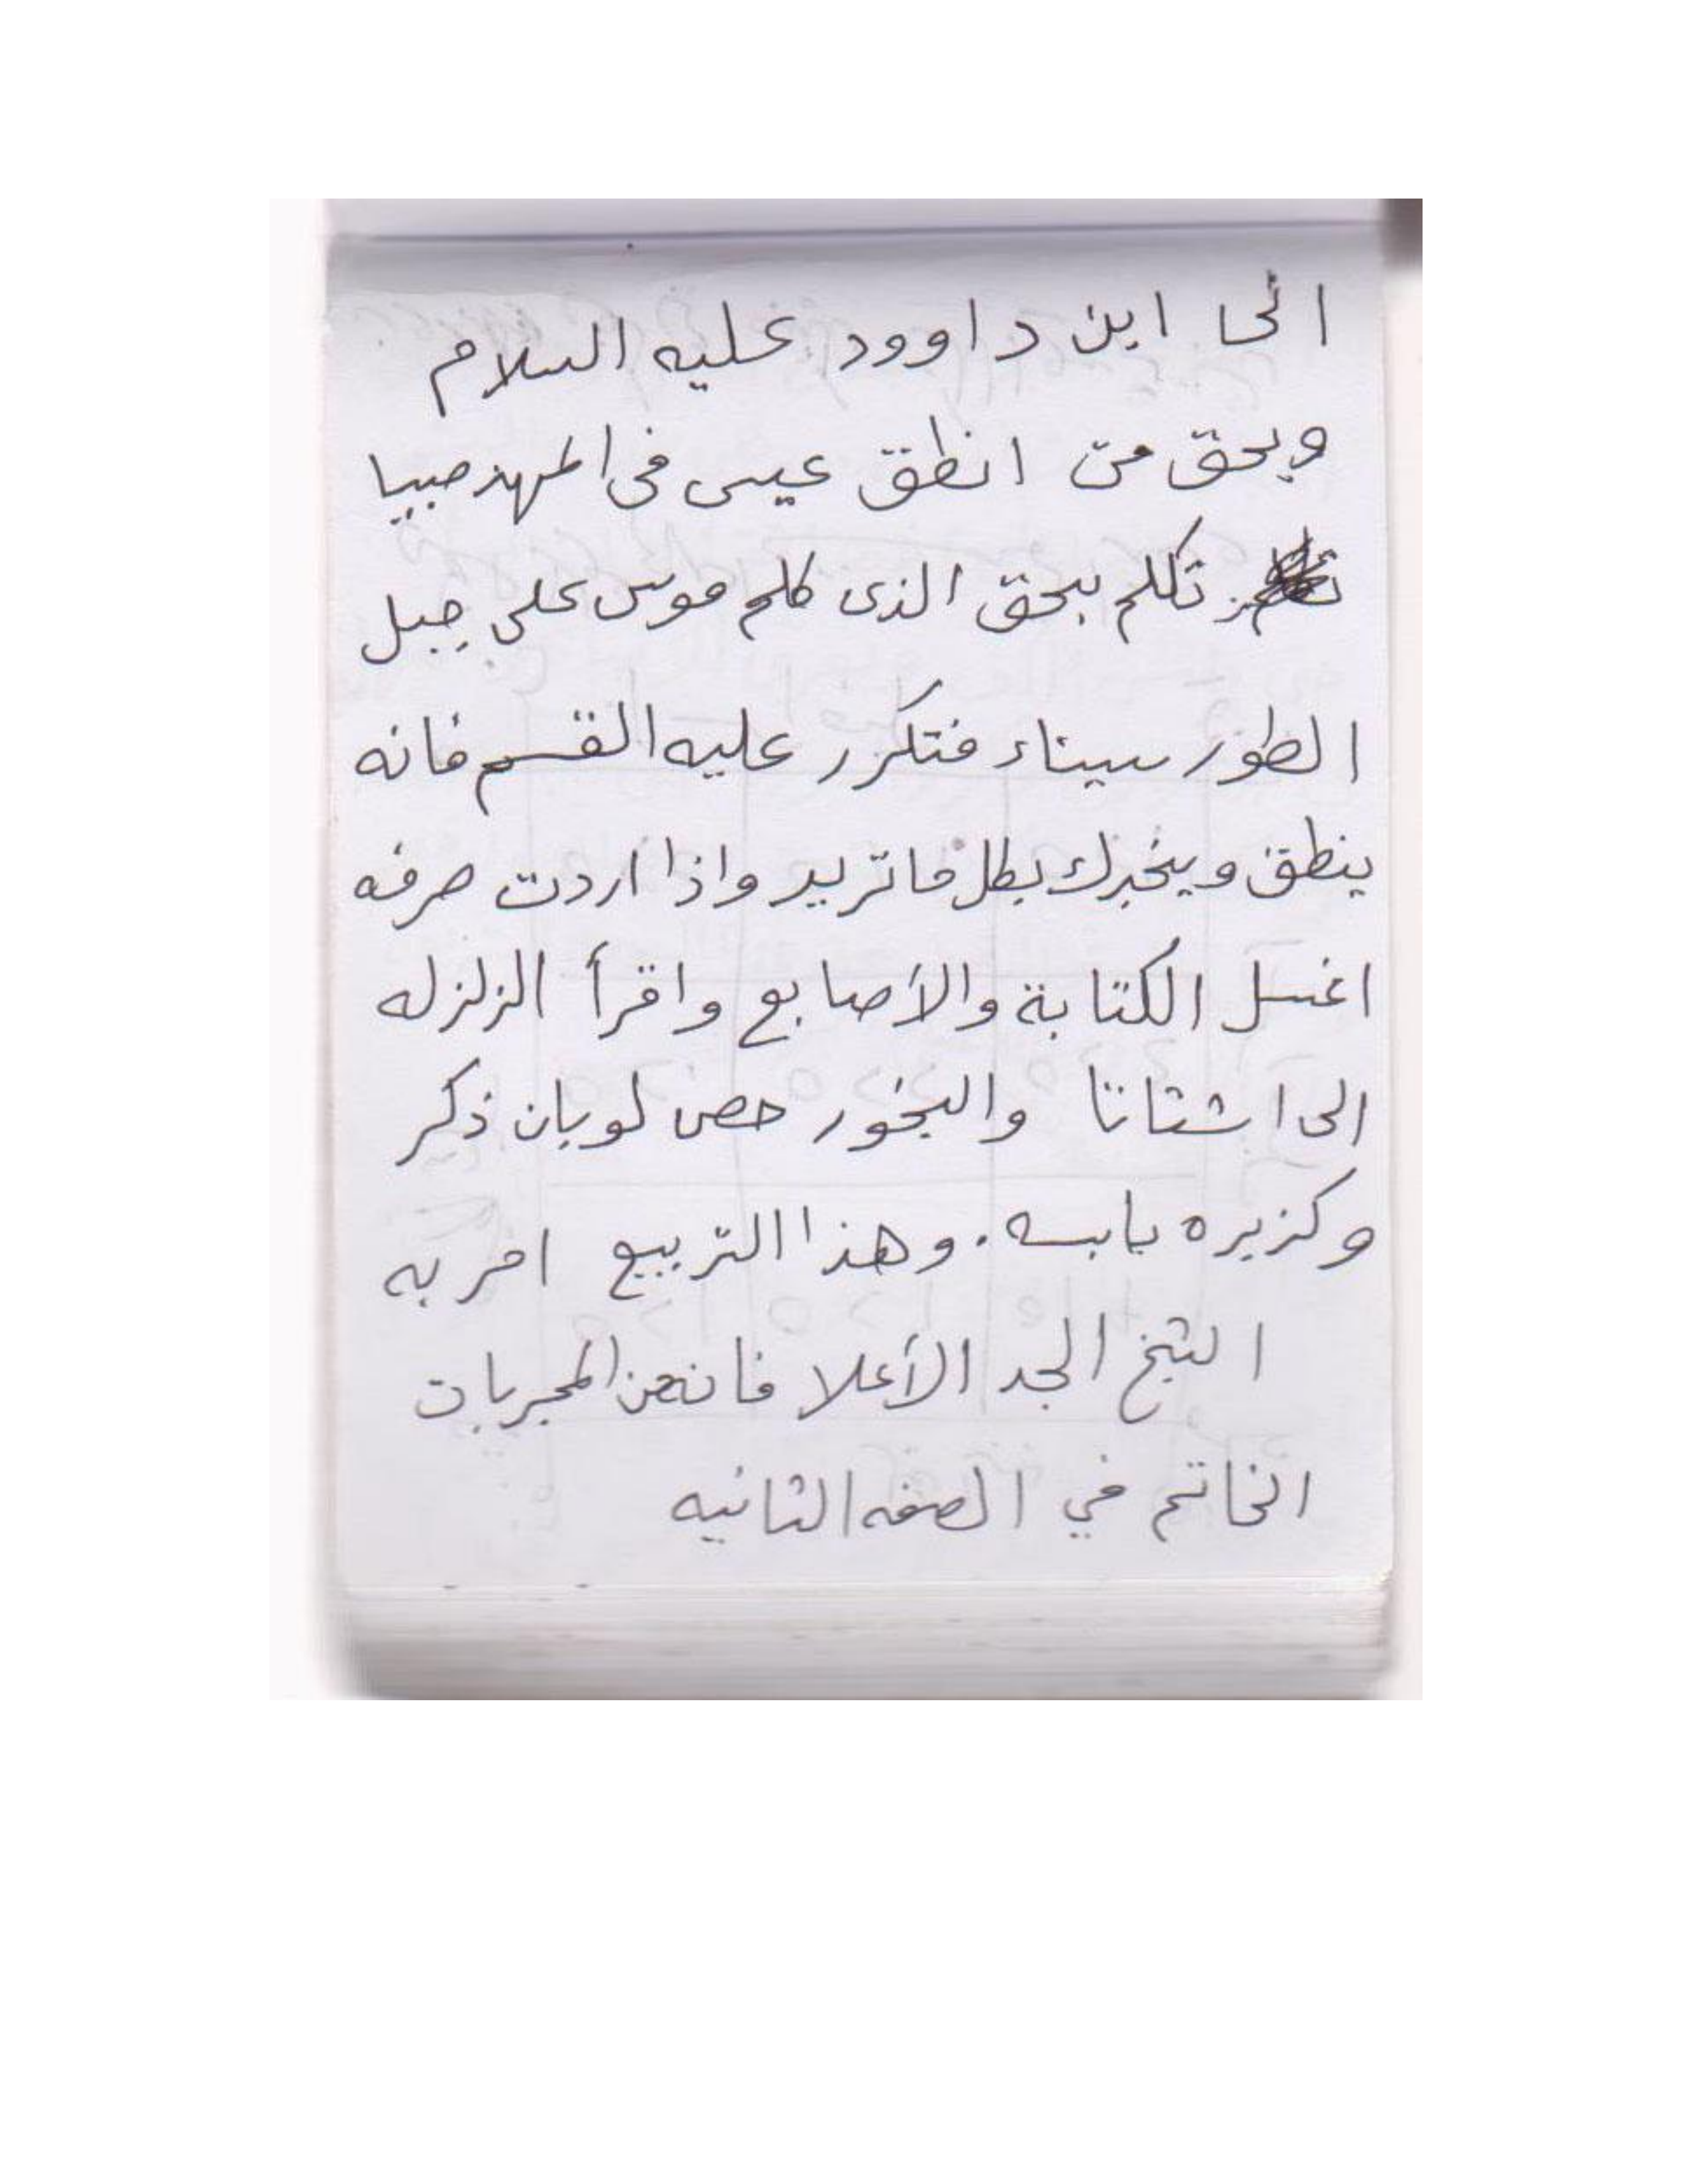 ابن داوود عليه السلام
وبحق من انطق عيسى فى المهد صبيا
تكلم بحق الذى كلم موسى على جبل
الطور سيناء فتكرر عليه القسم فانه
ينطق ويخبرك بكل ما تريد واذا اردت صرفه
اغسل الكتابة والأصابع واقرأ الزلزله
الى اشتاتا والبخور حصى لوبان ذكر
وكزبره يابسه . وهذا التربيع امر به
الشيخ الجد الأعلا فانه من المجربات
الخاتم في الصفه الثانيه